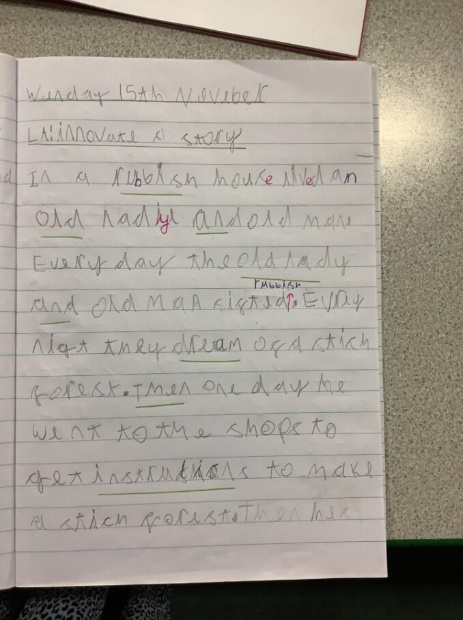 Wenday 15th Noveber
LN: innovate a story
In a rubbish house lived an
old ladiy and old man
Every day the old lady
rubbish
and old man sigted↑. Evray
night they dream of a stick
forest. Then one day he
went to the shops to
get instrutions to make
a stick forest. Then he